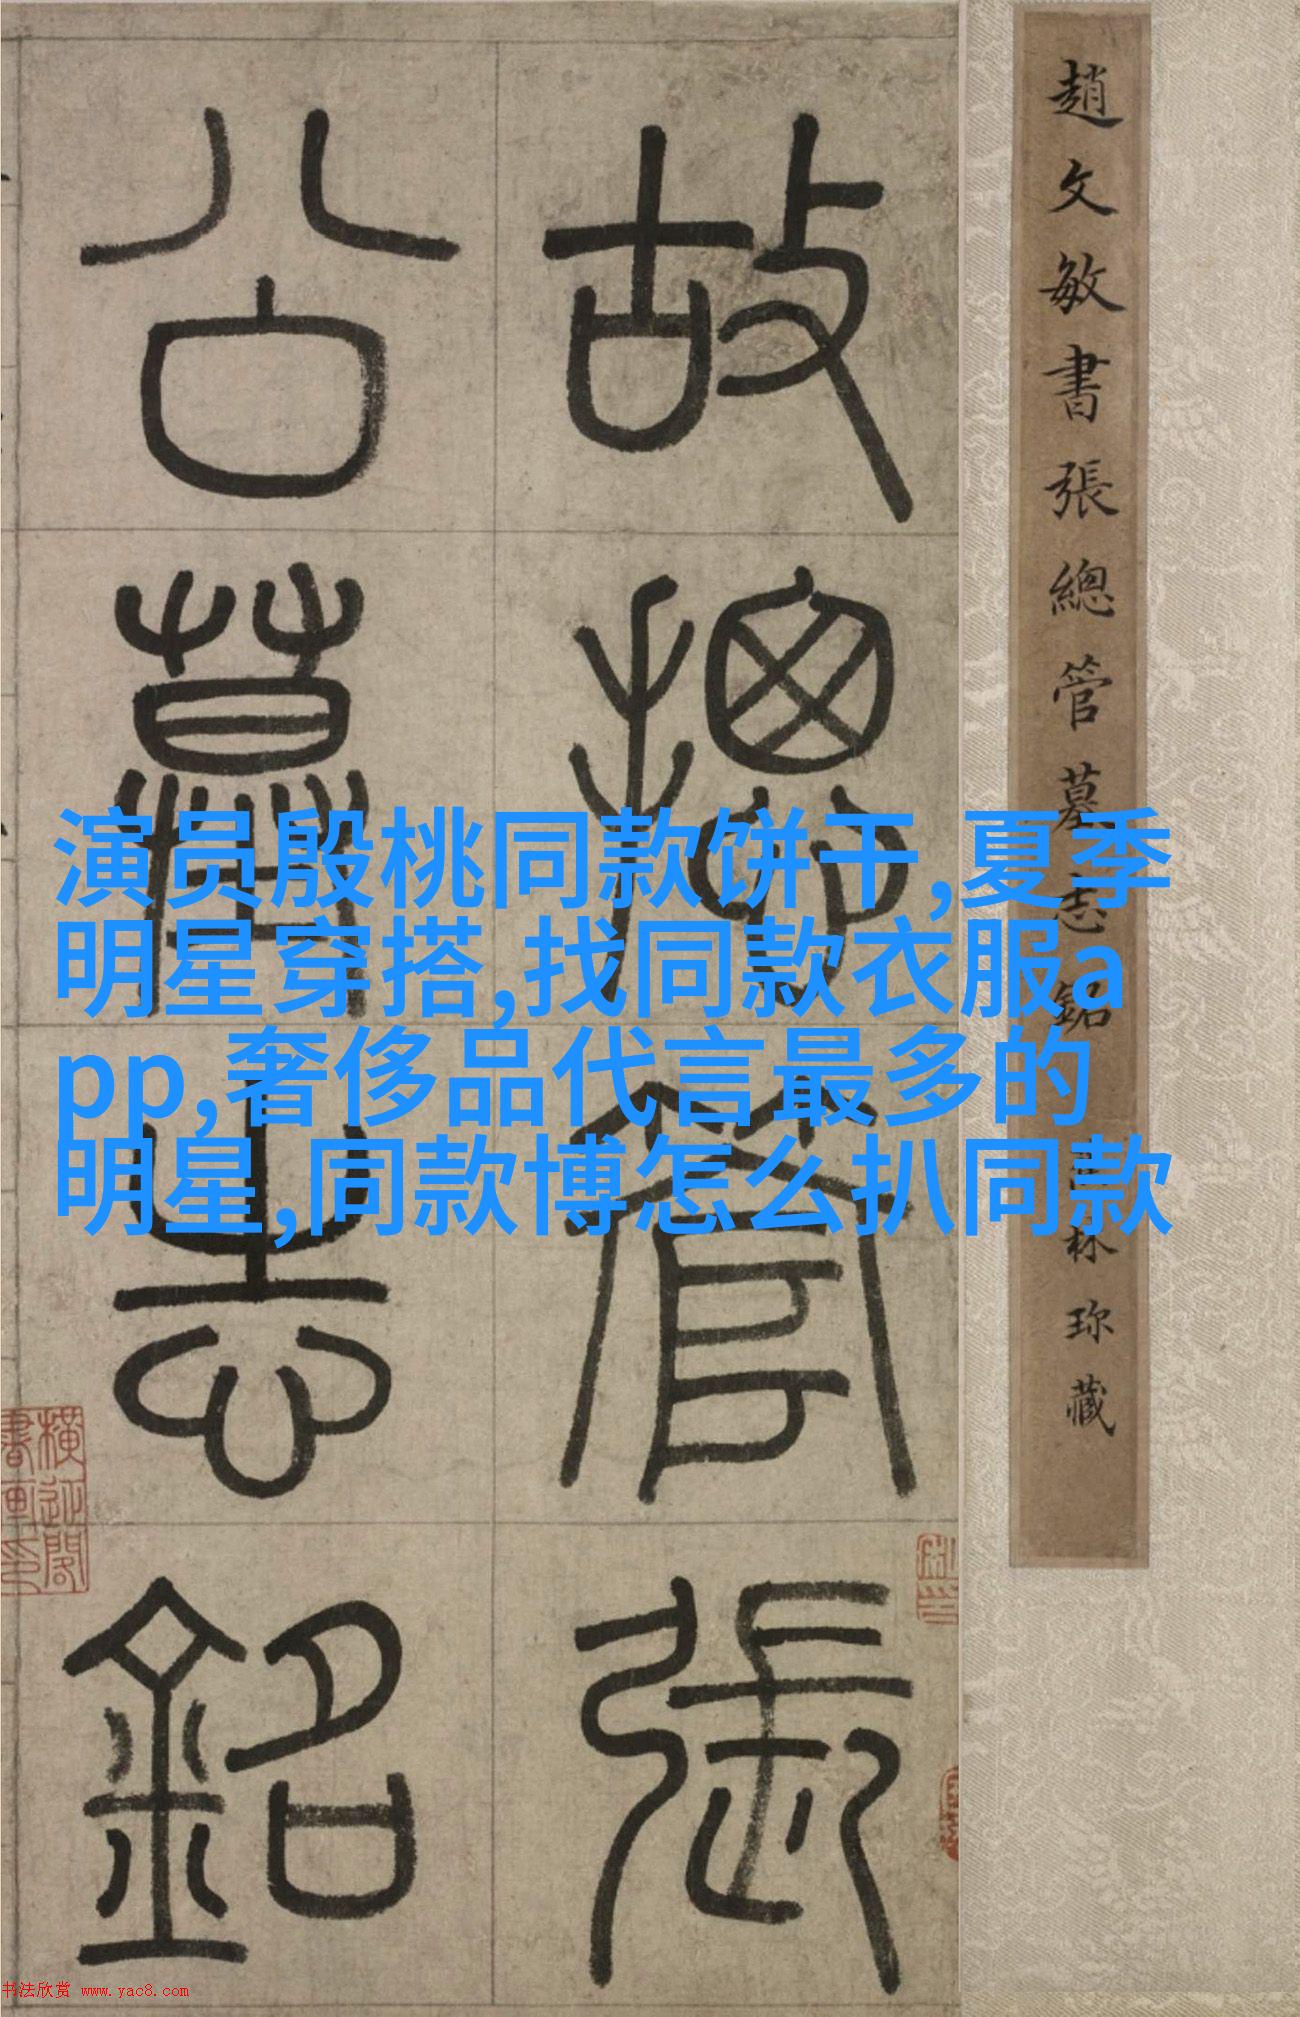 趙文敏書張總管墓志銘
林珎藏
故摠管張
公墓志銘
演员殷桃同款饼干,夏季
明星穿搭,找同款衣服a
pp,奢侈品代言最多的
明星,同款博怎么扒同款
书法欣赏 www.yac8.com